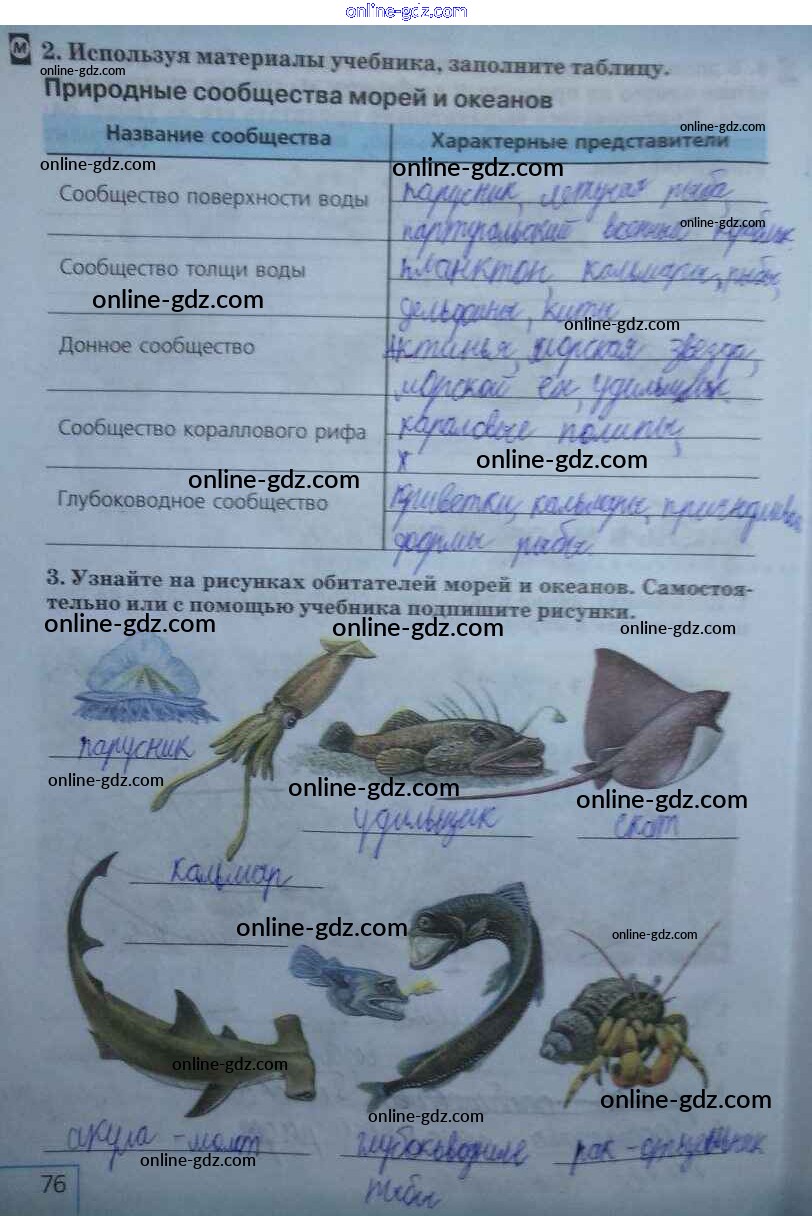 online-gdz.com
М 2. Используя материалы учебника, заполните таблицу.
online-gdz.com
Природные сообщества морей и океанов
online-gdz.com
Название сообщества Характерные представители
online-gdz.com online-gdz.com
Сообщество поверхности воды парусник, летучая рыба,
online-gdz.com
португальский военный кораблик
Сообщество толщи воды планктон, кальмары, рыбы,
online-gdz.com
дельфины, киты
online-gdz.com
Донное сообщество Актинья, морская звезда,
морской ёж, удильщик
Сообщество кораллового рифа караловые полипы,
х
online-gdz.com
online-gdz.com
Глубоководное сообщество креветки, кальмары,
формы рыбы
3. Узнайте на рисунках обитателей морей и океанов. Самостоя-
тельно или с помощью учебника подпишите рисунки.
online-gdz.com online-gdz.com online-gdz.com
парусник
online-gdz.com online-gdz.com online-gdz.com
удильщик скат
кальмар
online-gdz.com online-gdz.com
online-gdz.com
online-gdz.com
online-gdz.com
акула - молот глубоководные рак - отшельник
online-gdz.com
рыбы
76